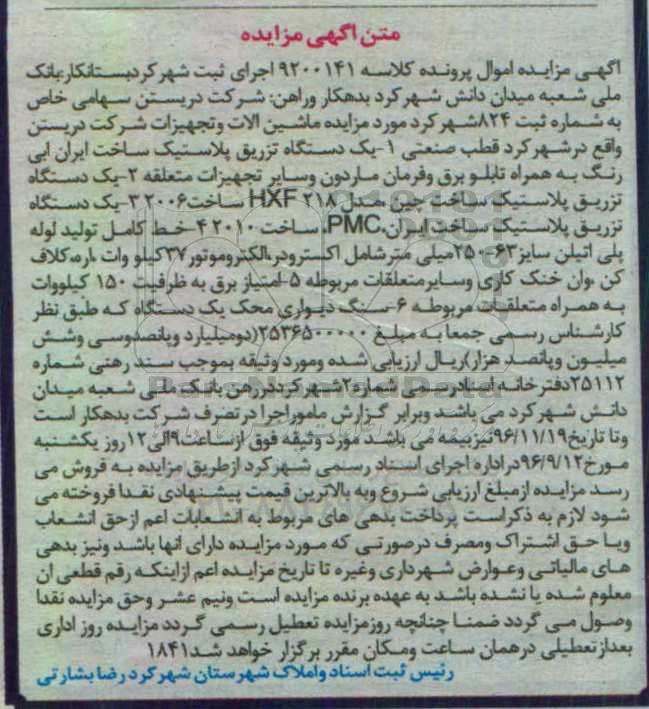 متن آگهی مزایده
آگهی مزایده اموال پرونده کلاسه ۹۲۰۰۱۴۱ اجرای ثبت شهر کردبستانکار:بانک
ملی شعبه میدان دانش شهر کرد بدهکار وراهن: شرکت دریستن سهامی خاص
به شماره ثبت ۸۲۴شهر کرد مورد مزایده ماشین الات وتجهیزات شرکت دریستن
واقع درشهر کرد قطب صنعتی ۱-یک دستگاه تزریق پلاستیک ساخت ایران ابی
رنگ به همراه تابلو برق وفرمان ماردون وسایر تجهیزات متعلقه ۲-یک دستگاه
تزریق پلاستیک ساخت چین ،مدل HXF ۲۱۸ ساخت۲۰۰۶ ۳-یک دستگاه
تزریق پلاستیک ساخت ایران،PMC، ساخت ۲۰۱۰ ۴-خط کامل تولید لوله
پلی اتیلن سایز۶۳-۲۵۰میلی مترشامل اکسترودر،الکتروموتور۳۷کیلو وات ،اره،کلاف
کن ،وان خنک کاری وسایرمتعلقات مربوطه ۵-امتیاز برق به ظرفیت ۱۵۰ کیلووات
به همراه متعلقات مربوطه ۶-سنگ دیواری محک یک دستگاه که طبق نظر
کارشناس رسمی جمعا به مبلغ ۲۵۳۶۵۰۰۰۰۰(دومیلیارد وپانصدوسی وشش
میلیون وپانصد هزار)ریال ارزیابی شده ومورد وثیقه بموجب سند رهنی شماره
۲۵۱۱۲دفترخانه اسنادرسمی شماره۲شهر کرددررهن بانک ملی شعبه میدان
دانش شهر کرد می باشد وبرابر گزارش ماموراجرا درتصرف شرکت بدهکار است
وتا تاریخ۹۶/۱۱/۱۹نیزبیمه می باشد مورد وثیقه فوق ازساعت۹الی۱۲روز یکشنبه
مورخ۹۶/۹/۱۲دراداره اجرای اسناد رسمی شهر کرد ازطریق مزایده به فروش می
رسد مزایده ازمبلغ ارزیابی شروع وبه بالاترین قیمت پیشنهادی نقدا فروخته می
شود لازم به ذکراست پرداخت بدهی های مربوط به انشعابات اعم ازحق انشعاب
ویا حق اشتراک ومصرف درصورتی که مورد مزایده دارای انها باشد ونیز بدهی
های مالیاتی وعوارض شهرداری وغیره تا تاریخ مزایده اعم ازاینکه رقم قطعی ان
معلوم شده یا نشده باشد به عهده برنده مزایده است ونیم عشر وحق مزایده نقدا
وصول می گردد ضمنا چنانچه روزمزایده تعطیل رسمی گردد مزایده روز اداری
بعدازتعطیلی درهمان ساعت ومکان مقرر برگزار خواهد شد۱۸۴۱
رئیس ثبت اسناد واملاک شهرستان شهر کرد رضا بشارتی